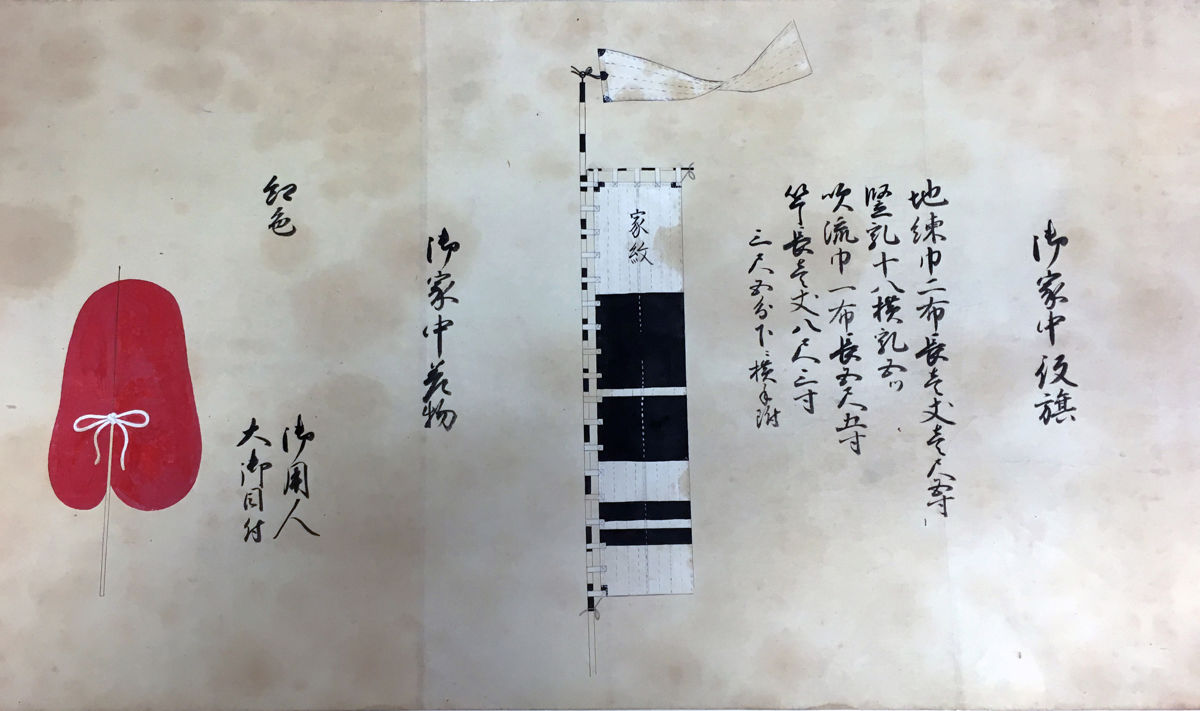 御家中役旗
地練巾二布長壱丈壱尺五寸
竪乳十八横乳五ツ
吹流巾一布長五尺五寸
竿長壱丈八尺三寸
三尺五分下ニ横手附
家紋
御家中差物
紅色
御用人
大御目付